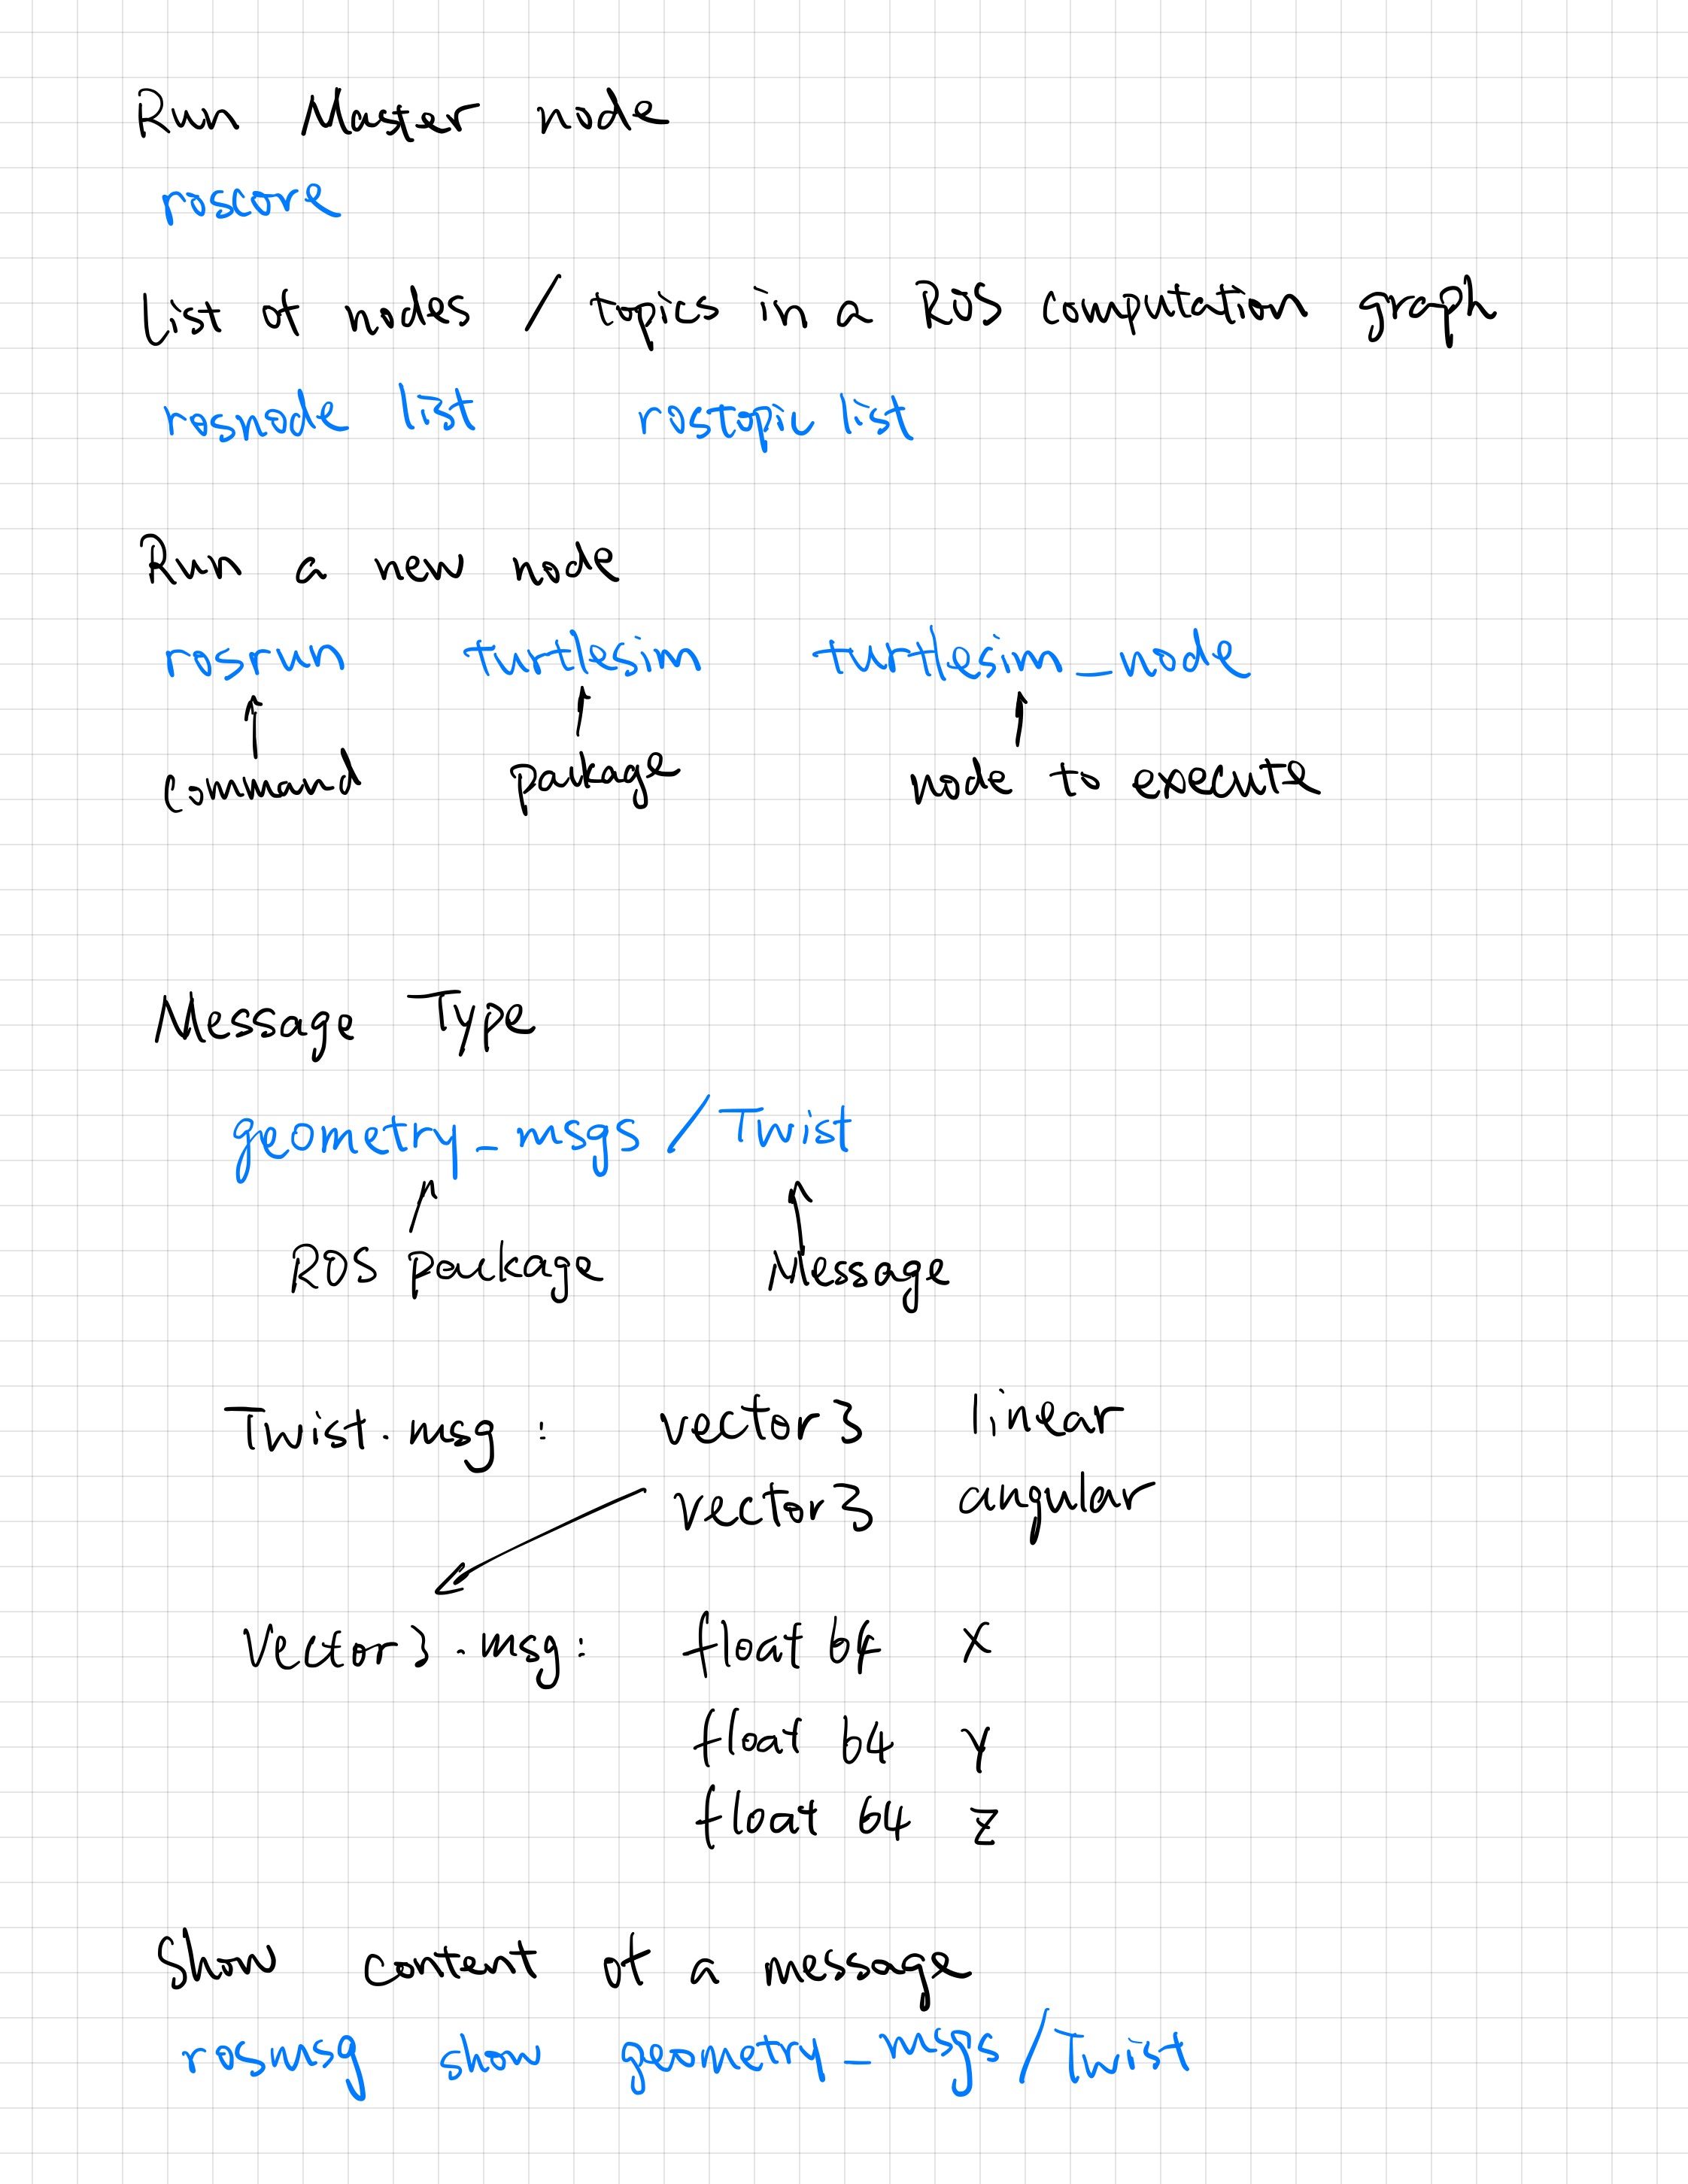 Run Master node
roscore
List of nodes / topics in a ROS computation graph
rosnode list rostopic list
Run a new node
rosrun turtlesim turtlesim_node
command package node to execute
Message Type
geometry_msgs / Twist
ROS package Message
Twist.msg : vector3 linear
vector3 angular
Vector3.msg: float 64 X
float 64 Y
float 64 Z
Show content of a message
rosmsg show geometry_msgs/Twist